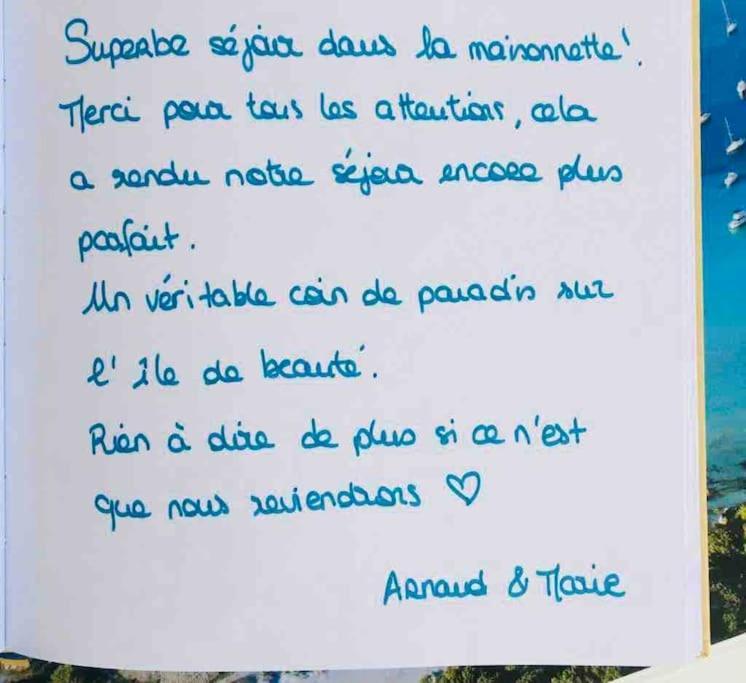 Superbe séjour dans la maisonnette!
Merci pour tous les attentions, cela
a rendu notre séjour encore plus
parfait.
Un véritable coin de paradis sur
l'île de beauté.
Rien à dire de plus si ce n'est
que nous reviendrons ♡
Arnaud & Marie